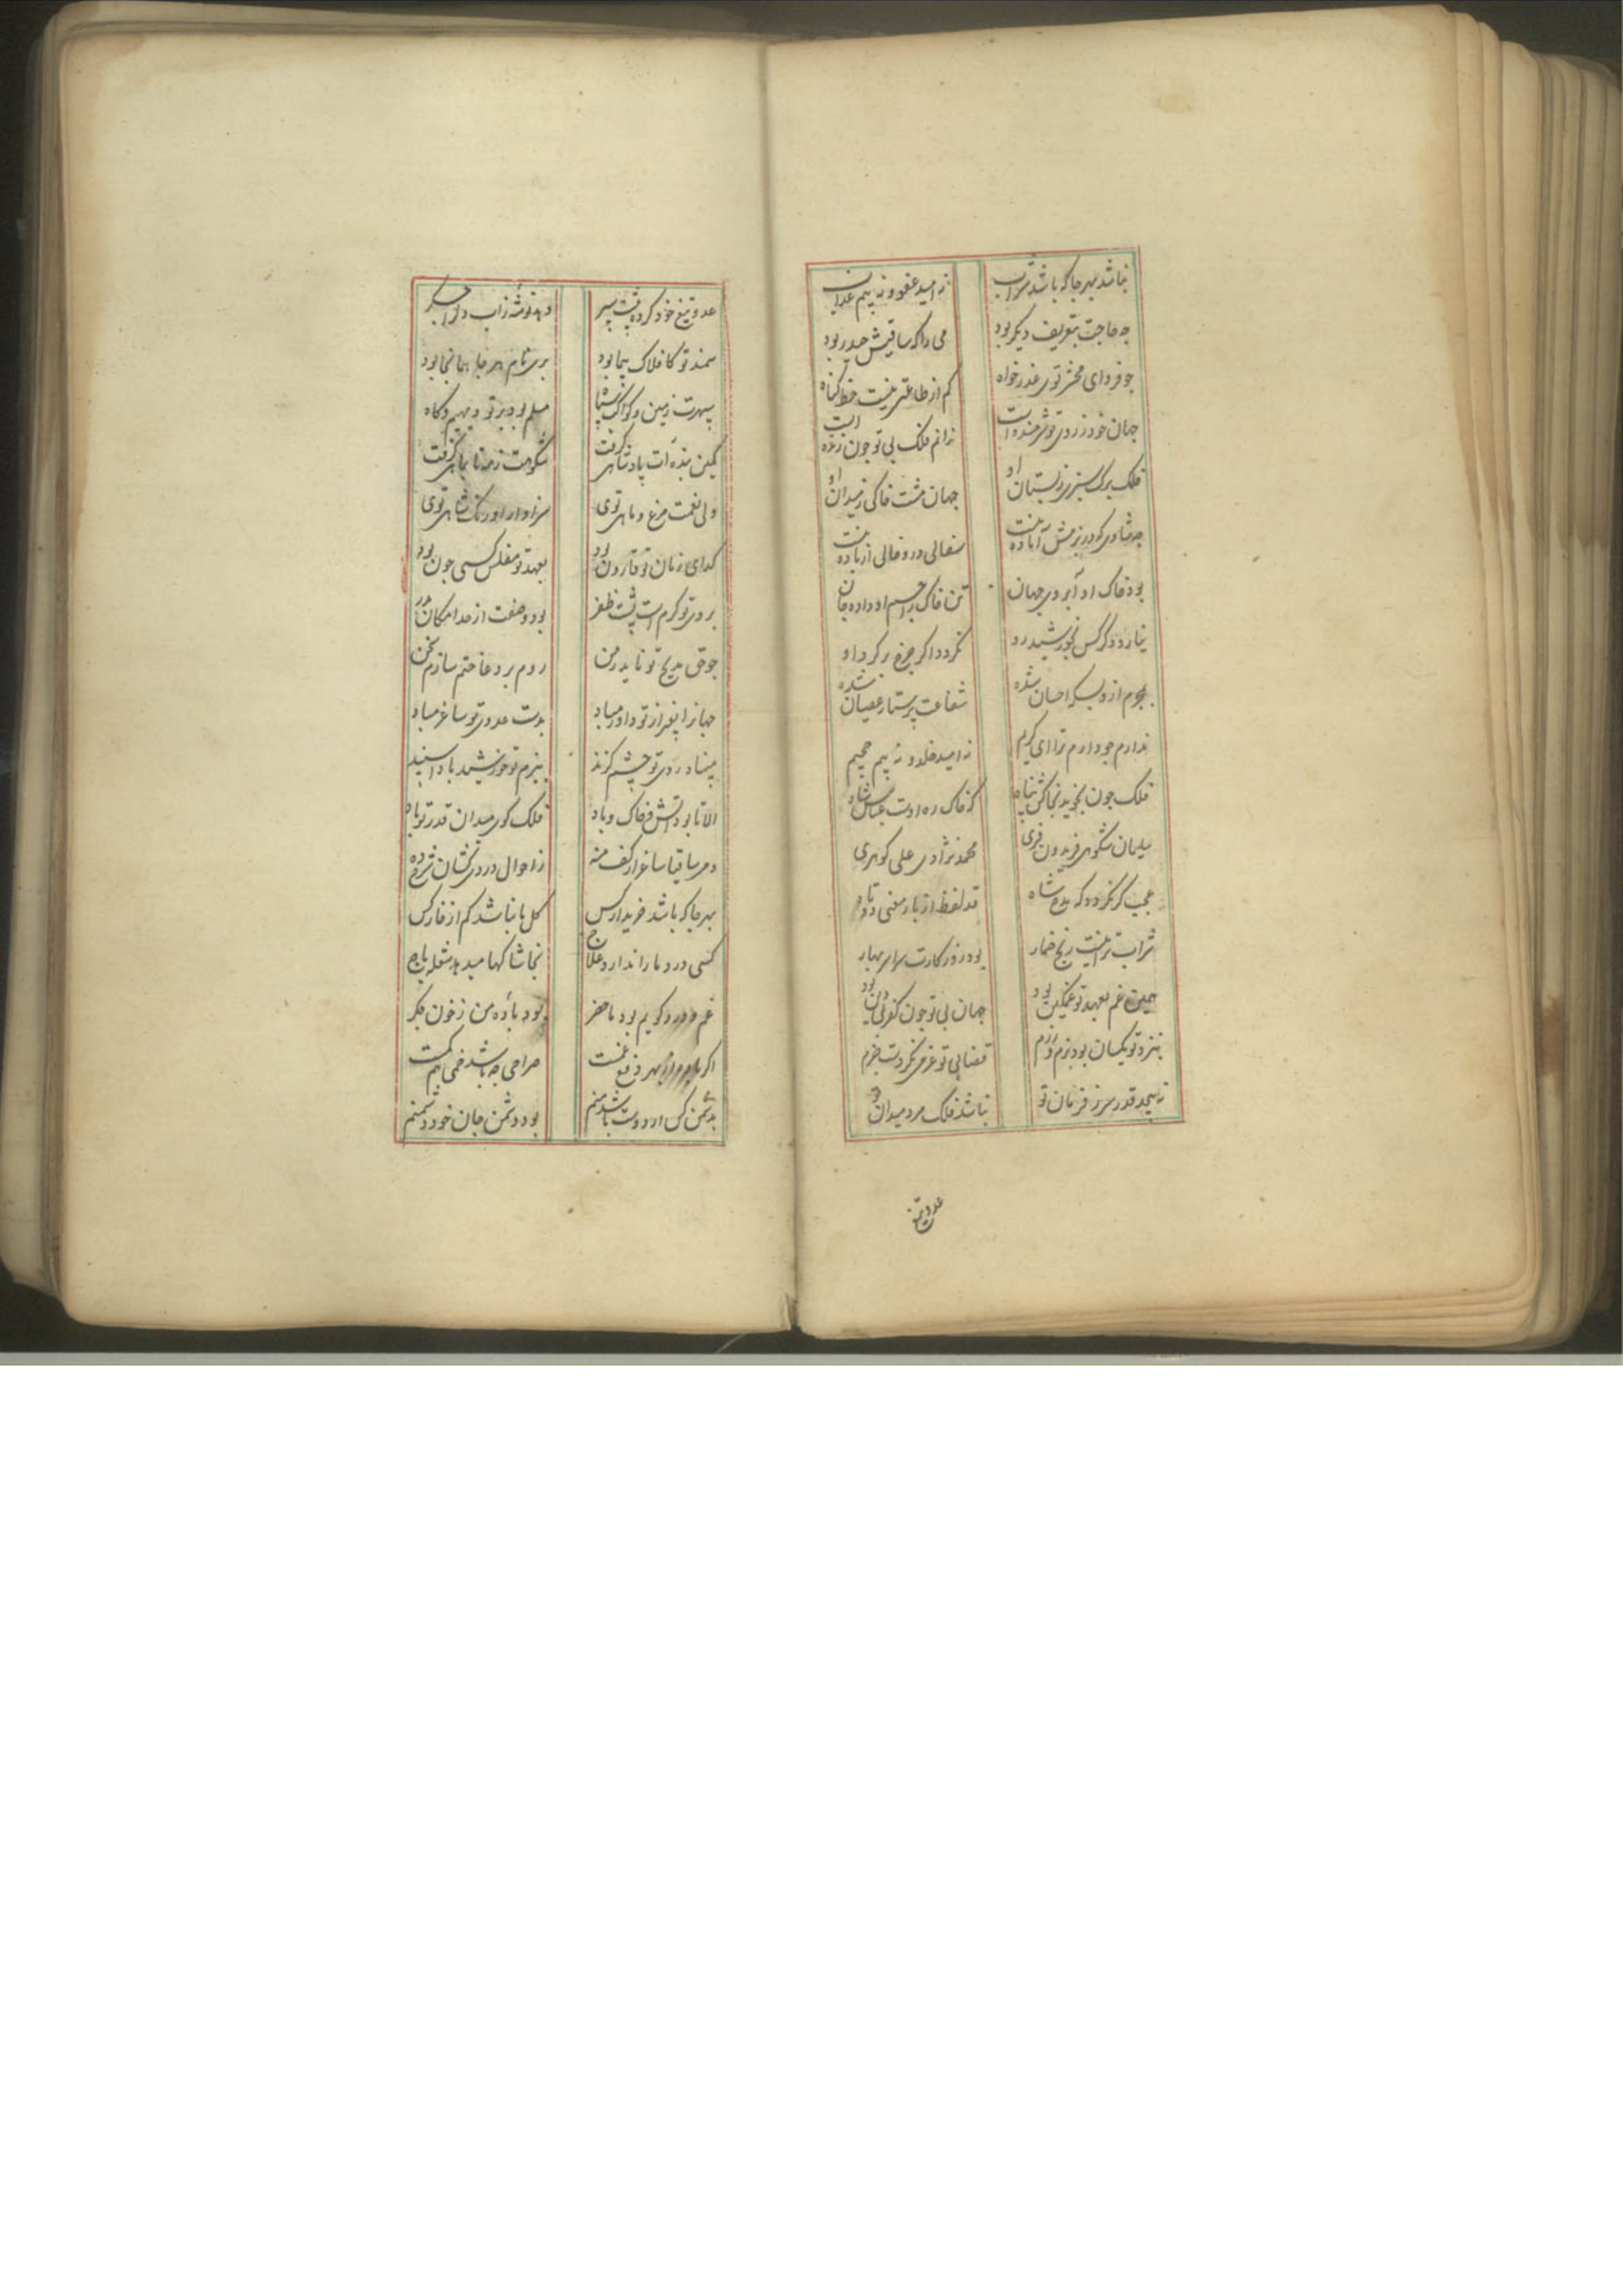 نباشد بهر جا که باشد شراب نه امید عفو و نه بیم عذاب
چه حاجت بتعریف دیگر بود می را که ساقیش حیدر بود
چو فردای محشر توی عذرخواه کم از طاعتی نیست خط گناه
جهان خود ز روی تو شرمنده است ندانم فلک بی تو چون زنده است
فلک برک سبزی ز بستان او جهان مشت خاکی ز میدان او
چه شادی که در بزمش آماده نیست سفالی درو خالی از باده نیست
بود خاک او آبروی جهان تن خاک را جسم او داده جان
نیارد دگر کس بخورشید رو نگردد اگر چرخ بر گرد او
بجرم از وبسکه احسان شده شفاعت پرستار عصیان شده
ندارم چو دارم ترا ای کریم نه امید خلد و نه بیم جحیم
فلک چون نجوید بخاکش پناه که خاک ره اوست عباس شاه
سلیمان شکوهی فریدون فری محمد نژادی علی کوهری
عجب کر نکردد که مدح شاه قد لفظ از بار معنی دوتاه
شراب ترا نیست رنج خمار بود روز کارت سراسر بهار
همین غم بعهد تو غمکین بود جهان بی تو چون کفر بی دین بود
بنزد تو یکسان بود بزم و رزم قضا بی تو عزمی نکردست جزم
نه پیچد قدر سر ز فرمان تو نباشد فلک مرد میدان تو
عدو تیغ
عدو تیغ خود کرده پشت سپر دهد توشه ز آب
سمند تو کافلاک پیما بود هر جا همانجا بود
سپهرت زمین و کواکب سپاه مسلم بود بر تو دیهیم و کاه
کمین بنده ات پادشاهی کرفت شکوهت ز مه تا بماهی کرفت
ولی نعمت مرغ و ماهی توی سزاوار اورنک شاهی توی
کدای زمان تو قارون بود بعهد تو مفلس کسی چون بود
بروی تو کرم است پشت ظفر بود وصفت از حد امکان بدر
چو حق مدیح تو ناید ز من روم بر دعا ختم سازم سخن
جهانرا بغیر از تو داور مباد بدست عدوی تو ساغر مباد
مبیناد روی تو چشم کزند ببزم تو خورشید بادا سپند
الا تا بود آتش و خاک و باد فلک کوی میدان قدر تو باد
دمی ساقیا ساغر از کف منه ز احوال دردی کشان شرح ده
بهر جا که باشد خریدار کس کل ما نباشد کم از خار کس
کسی درد ما را ندارد علاج نجاشاکها میدهد شعله باج
غم و درد کویم بود ما حضر بود باده من ز خون جکر
اکر بهر دفع غمست صراحی چه باشد خمی هم کمست
بدشمن کس ار دوست باشد منم بود دشمن جان خود دشمنم